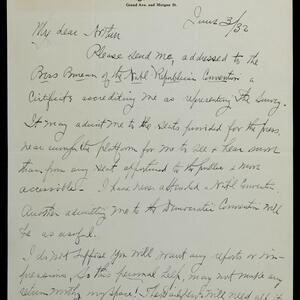 Grand Ave. and Morgan St.
June 3/32
My dear Arthur
Please send me, addressed to the
Press Bureau of the Natl Republican Convention a
Certificate accrediting me as representing the Survey.
It may admit me to the seats provided for the press,
near enough the platform for me to see & hear more
than from any seat apportioned to the public & more
accessible. I have never attended a Natl Convention.
Another admitting me to the Democratic Convention will
be as useful.
I do not suppose you will want any reports or im-
pressions, so this personal help may not make any
return worthy my space! The
will need